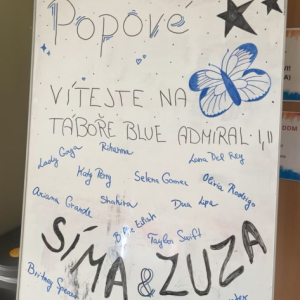 Popové
VÍTEJTE NA
TÁBOŘE BLUE ADMIRAL!,,
Lady Gaga Rihanna Lana Del Rey
Katy Perry Selena Gomez Olivia Rodrigo
Ariana Grande Shakira Dua Lipa
Billie Eilish
SÍMA & ZUZA
Taylor Swift
Britney Spears